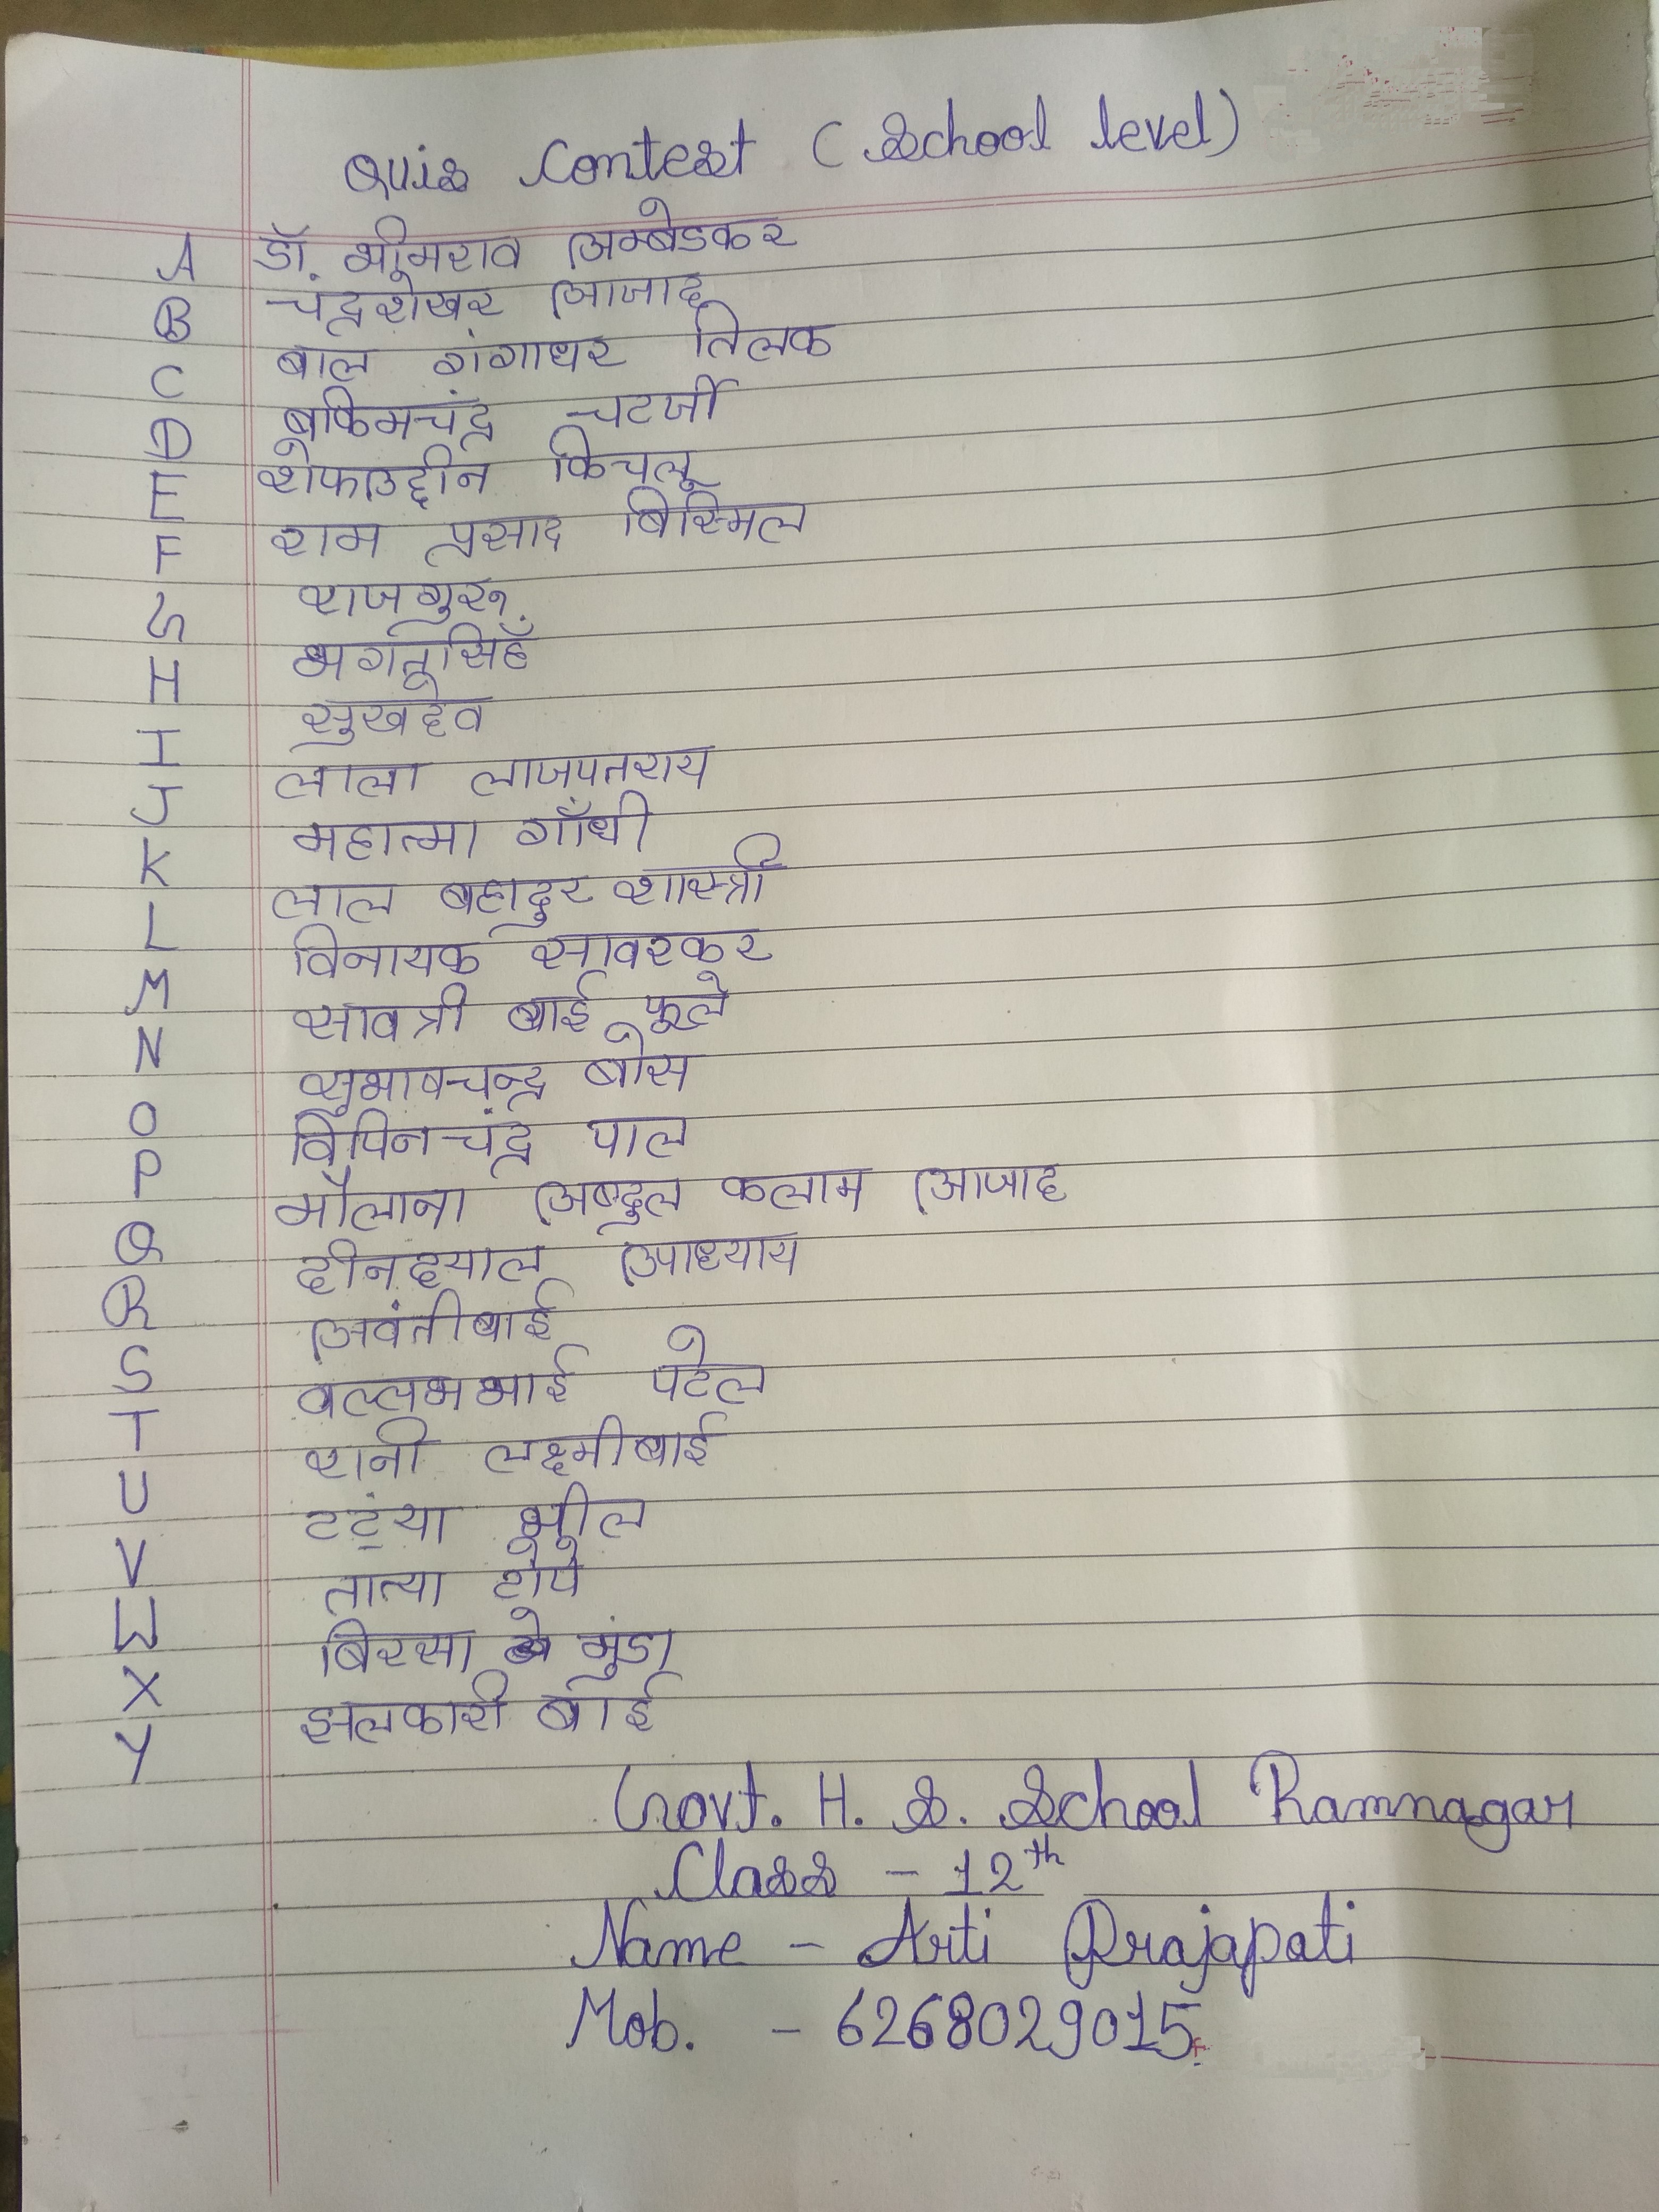 Quiz Contest (School level)
A डॉ. भीमराव अम्बेडकर
B चंद्रशेखर आजाद
C बाल गंगाधर तिलक
D बकिमचंद्र चटर्जी
E शेफाउद्दीन किचलू
F राम प्रसाद बिस्मिल
G राजगुरु
H भगतसिहँ
I सुखदेव
J लाला लाजपतराय
K महात्मा गाँधी
L लाल बहादुर शास्त्री
M विनायक सावरकर
N सावत्री बाई फूले
O सुभाषचन्द्र बोस
P विपिनचंद्र पाल
Q मौलाना अब्दुल कलाम आजाद
R दीनदयाल उपाध्याय
S अवंतीबाई
T वल्लभभाई पटेल
U रानी लक्ष्मीबाई
V टंट्या भील
W तात्या टोपे
X बिरसा मुंडा
Y झलकारी बाई
Govt. H. S. School Ramnagar
Class - 12th
Name - Arti Prajapati
Mob. - 6268029015